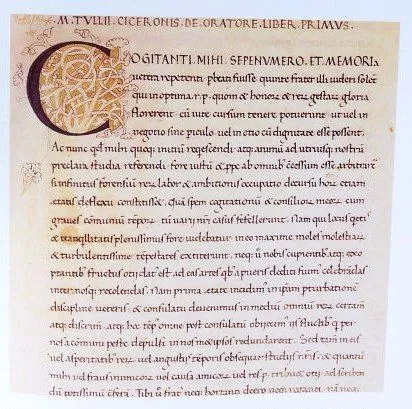 M. TVLLII. CICERONIS. DE. ORATORE. LIBER. PRIMVS.
COGITANTI. MIHI. SEPENVMERO. ET. MEMORIA
uetera repetenti. pbeati fuisse. quinte frater illi uideri solet
qui in optima. r. p. quom & honorib; & rerū gestarū gloria
florerent. eū uite cursum tenere potuerunt. ut uel in
negotio sine piculo. uel in otio cū dignitate esse possent.
Ac nunc q̃d mihi quoq; initiū reqescendi. atq; animū ad utriusq; nostrū
preclara studia referendi. fore iustū & ppe ab omnib; cc̄essum esse arbitrarer
si infinitus forensiū rerū labor & ambitionis occupatio decursu honorū etiam
etatis deflexu constitisset. Quā spem cogitationū & consiliorū meorū cum
graues cōmuniū tēporū tū uarii nr̄i casus fefellerunt. Nam qui locus qetis
& tranqllitatis plenissimus fore uidebatur. in eo maxime moles molestiarū
& turbulentissime tēpestates extiterunt. neq; ū nobis cupientib; atq; exo
ptantib; fructus otii dat' est. ad eas artes qb; a pueris dediti fuim' celebrādas
inter nosq; recolendas. Nam prima etate incidim' in ipsam pturbationē
discipline ueteris. & consulatu deuenimus in mediū omniū rerū certam̄
atq; discrim̄. atq; hoc tēp' omne post consulatū obiecim' iis fluctib; q per
nos a cōmuni peste depulsi in nos meipsos redundarent. Sed tam̄ in eis
uel asperitatib; rerū uel angustiis tēporis obsequar studiis nr̄is. & quantū
mihi uel fraus inimicorū uel causa amicorū uel res p. tribuet otii ad scriben
dū potissimū cōferā. Tibi ū frat' neq; hortanti deero neq; roganti. nā neq;